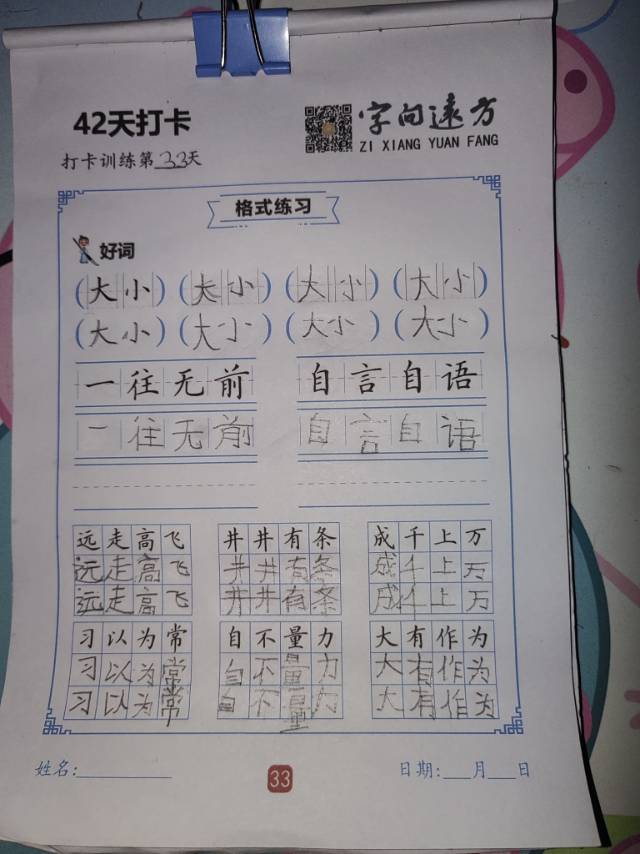 42天打卡
字向远方
ZI XIANG YUAN FANG
打卡训练第33天
格式练习
好词
(大小) (大小) (大小) (大小)
(大小) (大小) (大小) (大小)
一往无前 自言自语
一往无前 自言自语
远走高飞 井井有条 成千上万
远走高飞 井井有条 成千上万
远走高飞 井井有条 成千上万
习以为常 自不量力 大有作为
习以为常 自不量力 大有作为
习以为常 自不量力 大有作为
姓名: 33 日期: 月 日